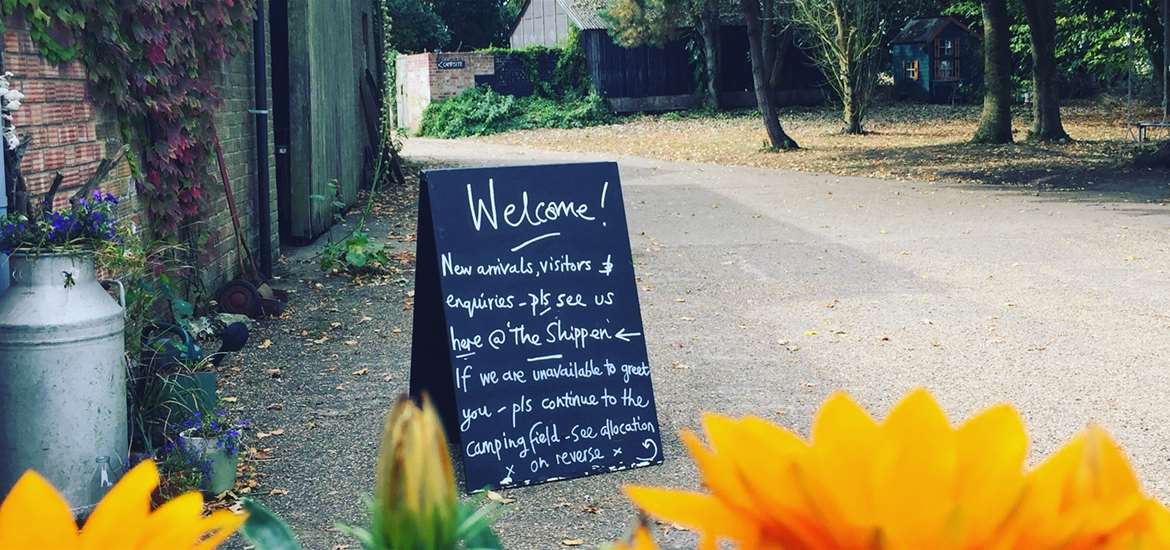 Welcome!
New arrivals, visitors &
enquiries - pls see us
here @ 'The Shippen' ←
If we are unavailable to greet
you - pls continue to the
camping field - see allocation
x on reverse x
CAMPSITE